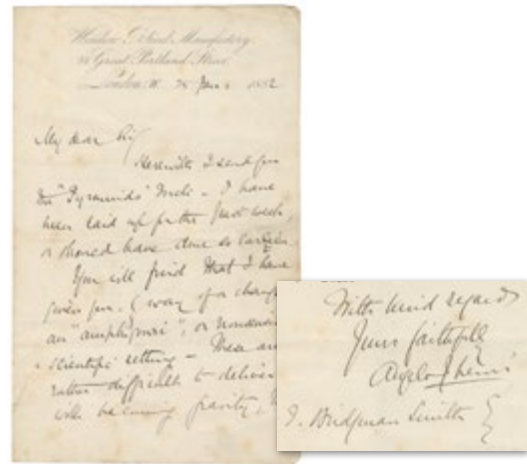 Window Blind Manufactory.
Great Portland Street.
London. W. 1882
My dear Sir
Herewith I send you
the "Pyramids" Melo - I have
been laid up for the past week
or should have done so earlier.
You will find that I have
given you, by way of a change
an "amphigouri", or nonsense
scientific setting - These are
rather difficult to deliver
with becoming gravity,
With kind regards
Yours faithfully
Angelo J. Lewis
J. Bridgman Smith